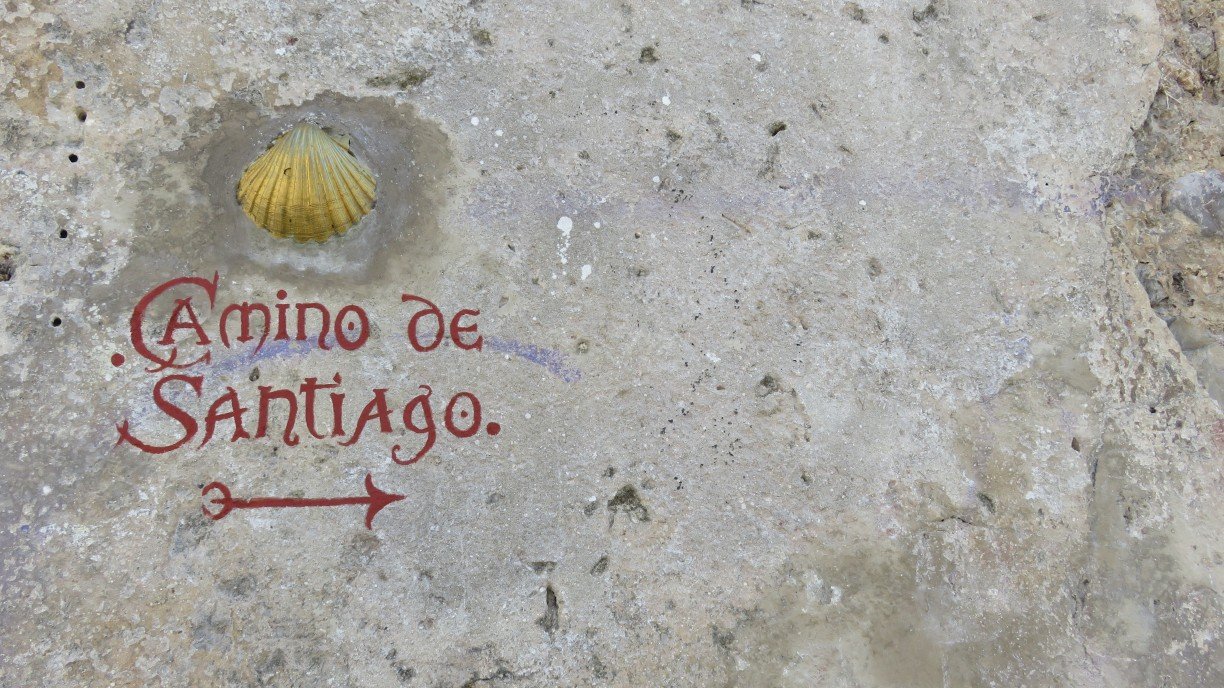 .Camino de
Santiago.